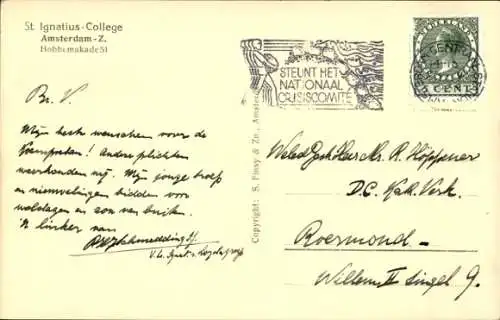 St. Ignatius-College
Amsterdam-Z.
Hobbemakade 51
STEUNT HET
NATIONAAL
CRISISCOMITE
5 CENT
Br. V.
Mijn beste wenschen voor de
Andere plichten
weerhouden mij. Mijn jonge troep
en nieuwelingen bidden voor
welslagen en zon van buiten.
'n linker van
Copyright: S. Pinsy & Zn., Amsterdam
WelEd. Gestr. Heer Mr. R. Höppener
D.C. Kath. Verk.
Roermond —
Willem II Singel 9.